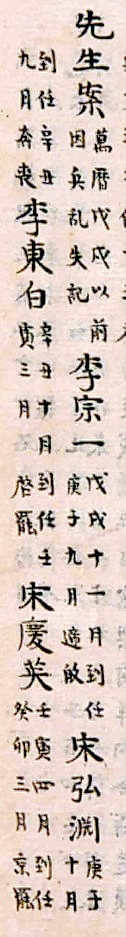 先生案 萬曆戊戌以前因兵乱失記 李宗一 戊戌十一月到任庚子九月適啟 宋弘淵 庚子十月
到任辛丑九月奔喪 李東白 辛丑十月到任壬寅三月 啓罷 宋慶英 壬寅四月到任癸卯三月京罷